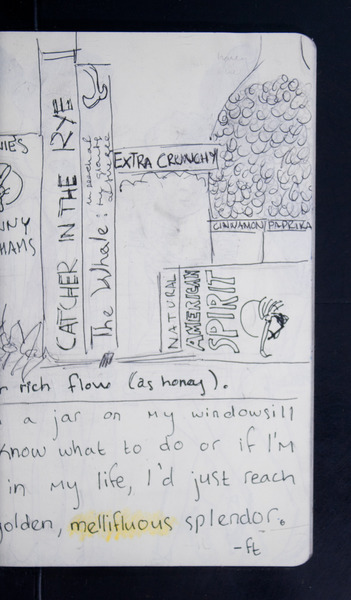 CATCHER IN THE RYE
The Whale:
in search of
my giants
EXTRA CRUNCHY
CINNAMON PAPRIKA
NATURAL
AMERICAN
SPIRIT
rich flow (as honey).
a jar on my windowsill
know what to do or if I'm
in my life, I'd just reach
golden, mellifluous splendor.
-ft